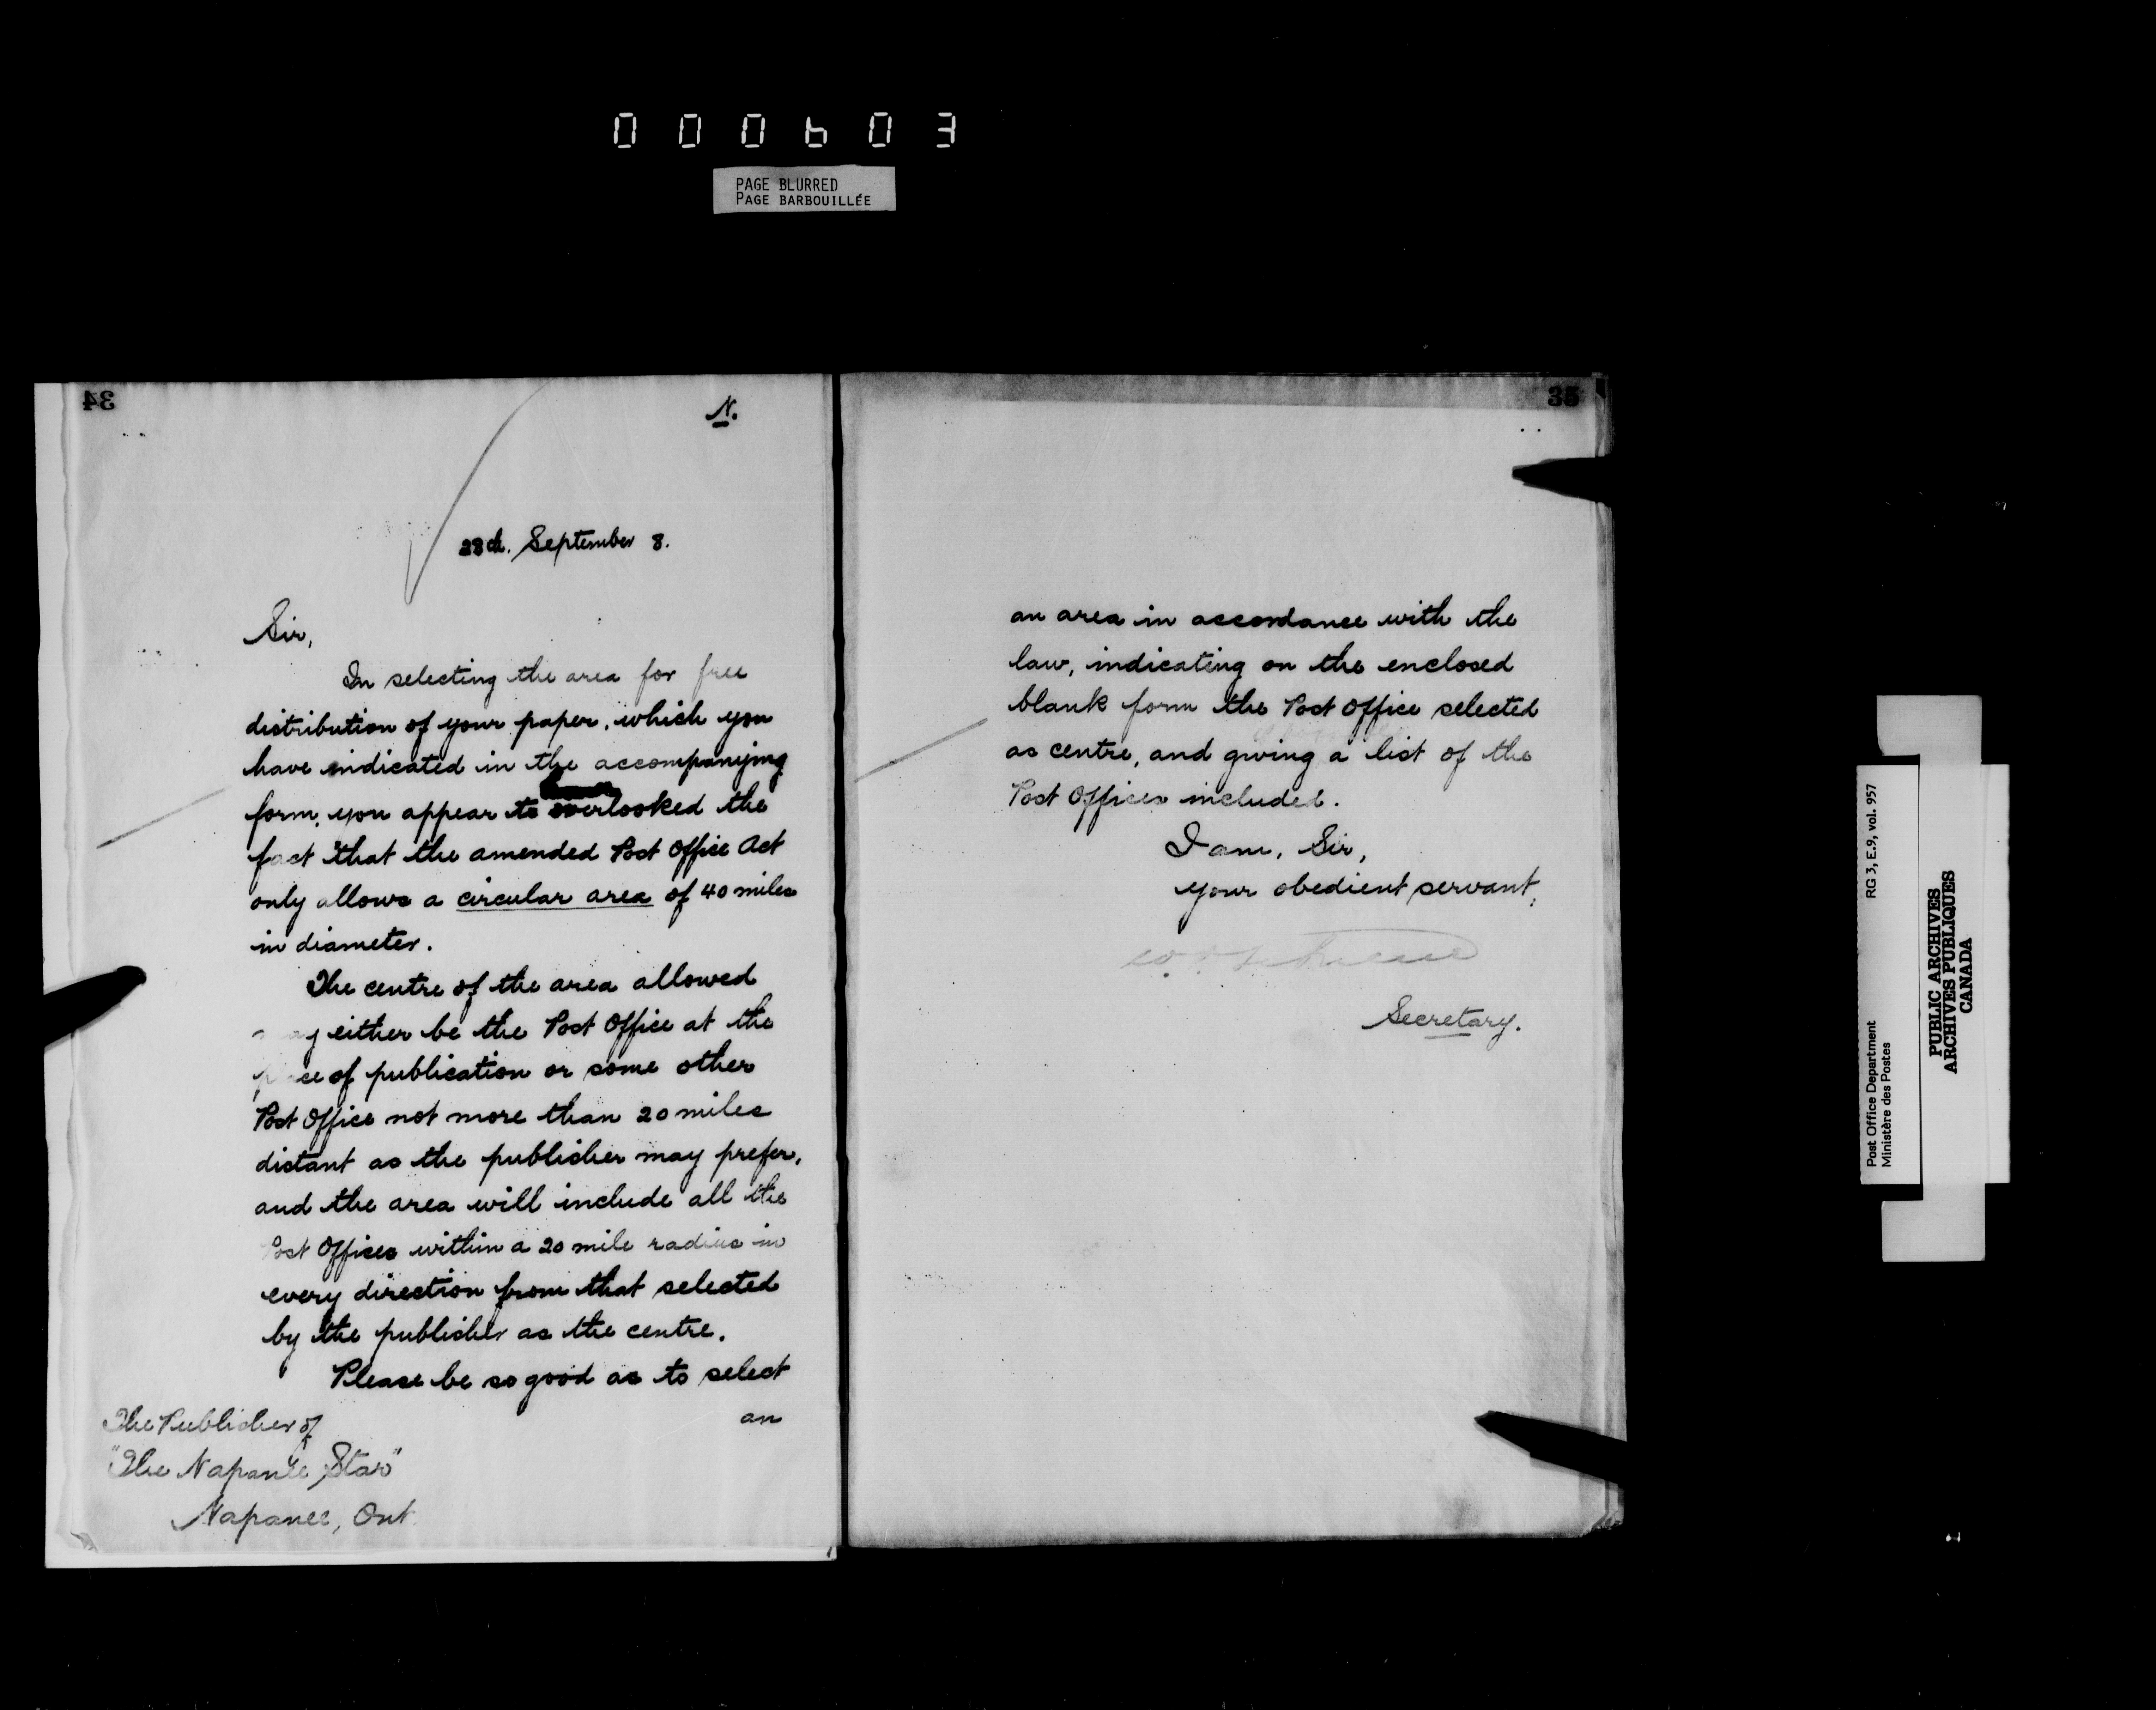 000603
PAGE BLURRED
PAGE BARBOUILLÉE
34
N.
28th. September 8.
Sir,
In selecting the area for free
distribution of your paper, which you
have indicated in the accompanying
form, you appear to overlooked the
fact that the amended Post Office Act
only allows a circular area of 40 miles
in diameter.
The centre of the area allowed
may either be the Post Office at the
place of publication or some other
Post Office not more than 20 miles
distant as the publisher may prefer,
and the area will include all the
Post Offices within a 20 mile radius in
every direction from that selected
by the publisher as the centre.
Please be so good as to select
an
The Publisher of
"The Napanee Star"
Napanee, Ont.
35
an area in accordance with the
law, indicating on the enclosed
blank form the Post Office selected
as centre, and giving a list of the
Post Offices included.
I am, Sir,
your obedient servant,
Secretary.
RG 3, E.9, vol. 957
Post Office Department
Ministère des Postes
PUBLIC ARCHIVES
ARCHIVES PUBLIQUES
CANADA